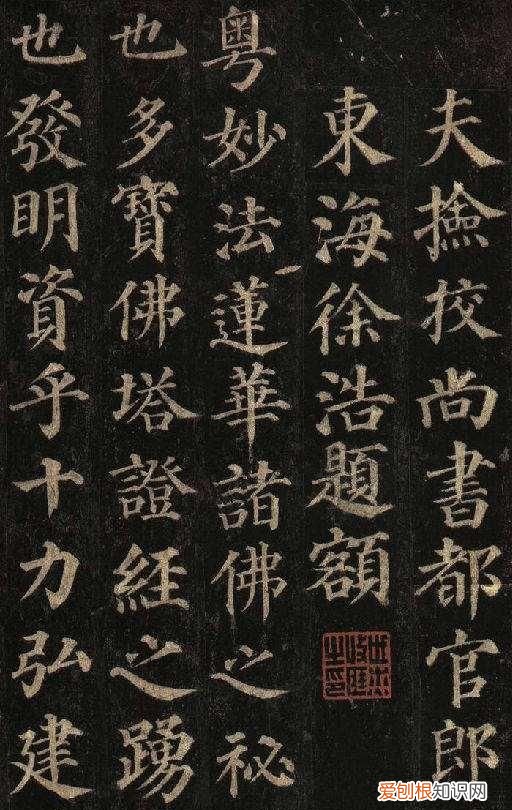 夫撿挍尚書都官郎
東海徐浩題額
粵妙法蓮華諸佛之祕
也多寶佛塔證經之踴
也發明資乎十力弘建
爱刨根知识网